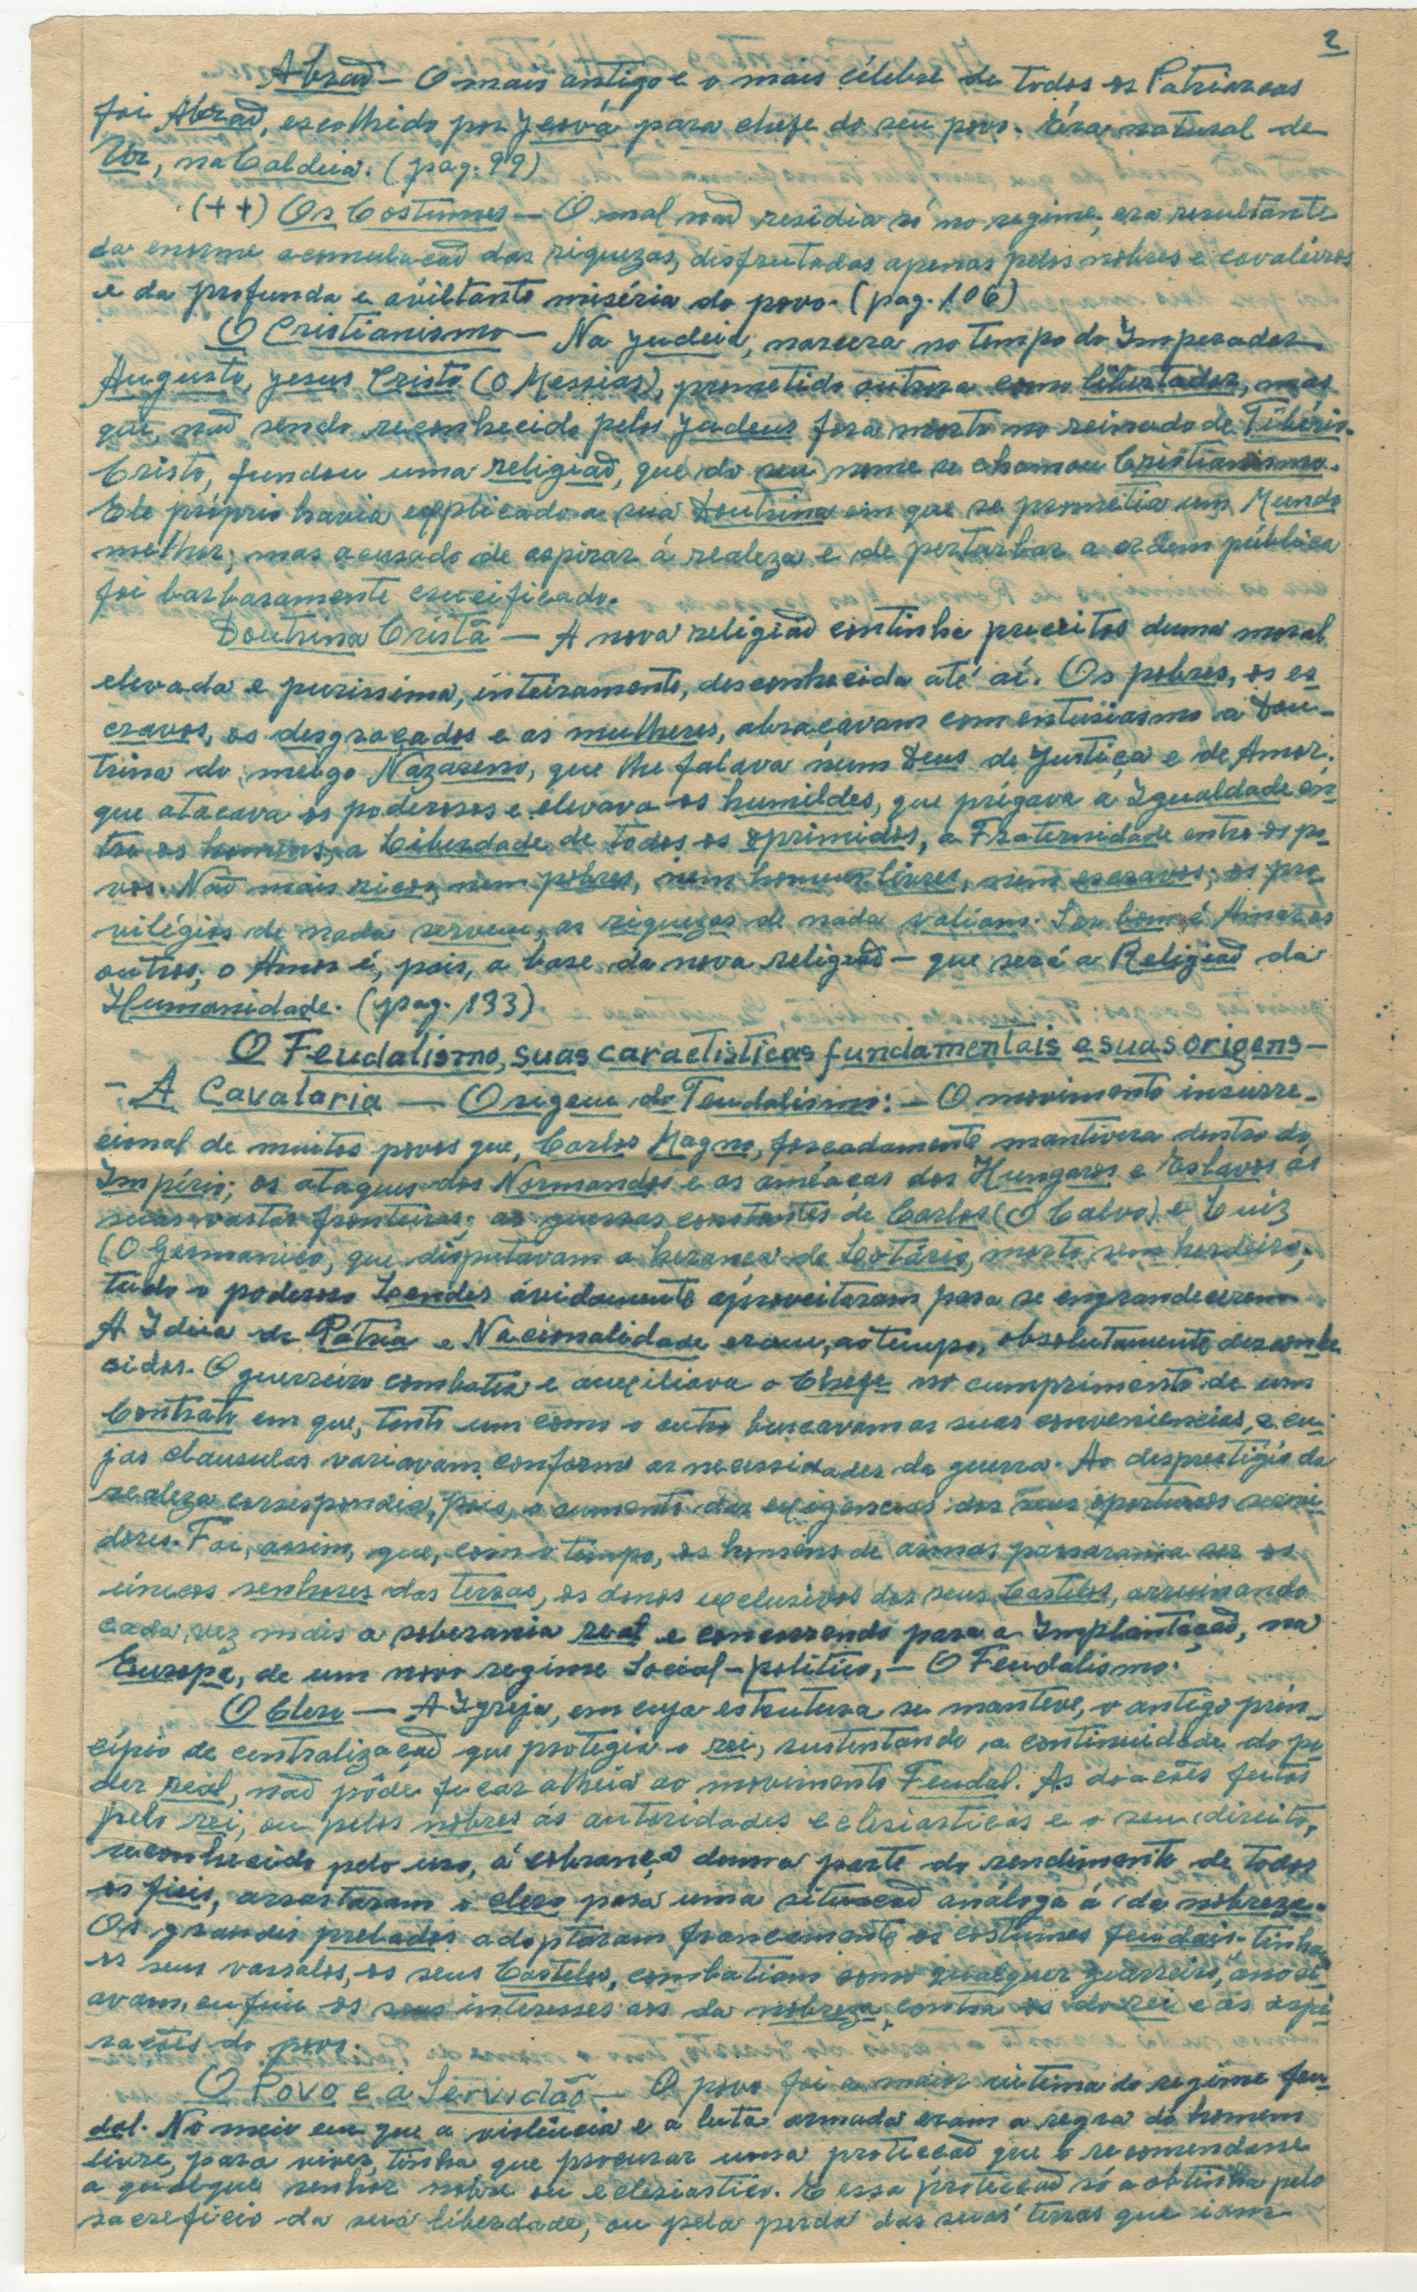 2
Abraão — O mais antigo e o mais célebre de todos os Patriarcas
foi Abraão, escolhido por Jeová para chefe do seu povo. Éra natural de
Ur, na Caldeia. (pag. 99)
(++) Os Costumes — O mal não residia só no regime, era resultante
da enorme acomulação das riquezas, disfrutadas apenas pelos nobres e cavaleiros
e da profunda e áviltante miséria do povo. (pag. 106)
O Cristianismo — Na Judeia, nascera no tempo do Imperador
Augusto, Jesus Cristo (O Messias), prometido outrora como libertador, mas
que, não sendo reconhecido pelos Judeus fora morto no reinado de Tibério.
Cristo, fundou uma religião, que do seu nome se chamou Cristianismo.
Ele próprio havia explicado a sua Doutrina em que se prometia um Mundo
melhor; mas acusado de aspirar á realeza e de perturbar a ordem pública
foi barbaramente crucificado.
Doutrina Cristã — A nova religião continha preceitos duma moral
elevada e purissima, inteiramente, desconhecida até aí. Os pobres, os es-
cravos, os desgraçados e as mulheres, abraçavam com entusiasmo a Dou-
trina do meigo Nazareno, que lhe falava num Deus de Justiça e de Amor.
que atacava os poderosos e elevava os humildes, que prégava a Igualdade en-
tre os homens, a Liberdade de todos os oprimidos, a Fraternidade entre os po-
vos. Não mais ricos, nem pobres, nem homens livres, nem escravos; os pri-
vilégios de nada servem, as riquezas de nada valiam. Ser bom é Amar os
outros; o Amor é, pois, a base da nova religião — que será a Religião da
Humanidade. (pag. 133)
O Feudalismo, suas caractisticas fundamentais e suas origens —
— A Cavalaria — Origem do Feudalismo: — O movimento insurre-
cional de muitos povos que, Carlos Magno, forçadamente mantivera dentro do
Império; os ataques dos Normandos e as améaças dos Hungaros e Eslavos ás
suas vastas fronteiras; as guerras constantes de Carlos (O Calvo) e Luiz
(O Germanico, que disputavam a herança de Lotário, morto sem herdeiro;
tudo o poderoso Leudes ávidamente aproveitaram para se engrandecerem
A Ideia de Pátria e Nacionalidade eram, ao tempo, absolutamente desconhe
cidos. O guerreiro combatia e auxiliava o Chefe no cumprimento de um
Contrato em que, tanto um como o outro buscavam as suas conveniencias, e cu-
jas clausulas variavam conforme as necessidades da guerra. Ao desprestígio da
realeza correspondia, pois, o aumento das exigencias dos seus oportunos servi-
dores. Foi, assim, que, com o tempo, os homens de armas passaram a ser os
únicos senhores das terras, os donos exclusivos dos seus Castelos, arruinando
cada vez mais a soberania real e concorrendo para a Implantação, na
Europa, de um novo regime Social-politico, — O Feudalismo.
O Clero — A Igreja, em cuja estrutura se manteve, o antigo prin-
cípio de centralização que protegia o rei, sustentando a continuidade do po-
der real, não pôde ficar alheia ao movimento Feudal. As doacões feitas
pelo rei, ou pelos nobres ás autoridades eclesiasticas e o seu direito,
reconhecido pelo uso, á cobrança duma parte do rendimento de todos
os fieis, arrastaram o clero para uma situação análoga á da nobreza.
Os grandes prelados adoptaram francamente os costumes feudais. tinham
os seus vassalos, os seus Castelos, combatiam como qualquer guerreiro, associ-
avam, enfim os seus interesses aos da nobreza, contra os do rei e as aspi-
rações do povo.
O Povo e a Servidão — O povo foi a maior vitima do regime feu-
dal. No meio em que a violência e a luta armada eram a regra do homem
livre, para viver, tinha que procurar uma protecção que o recomendasse
a qualquer senhor nobre ou eclesiastico. E essa protecção só a obtinha pelo
sacreficio da sua liberdade, ou pela perda das suas terras que iam